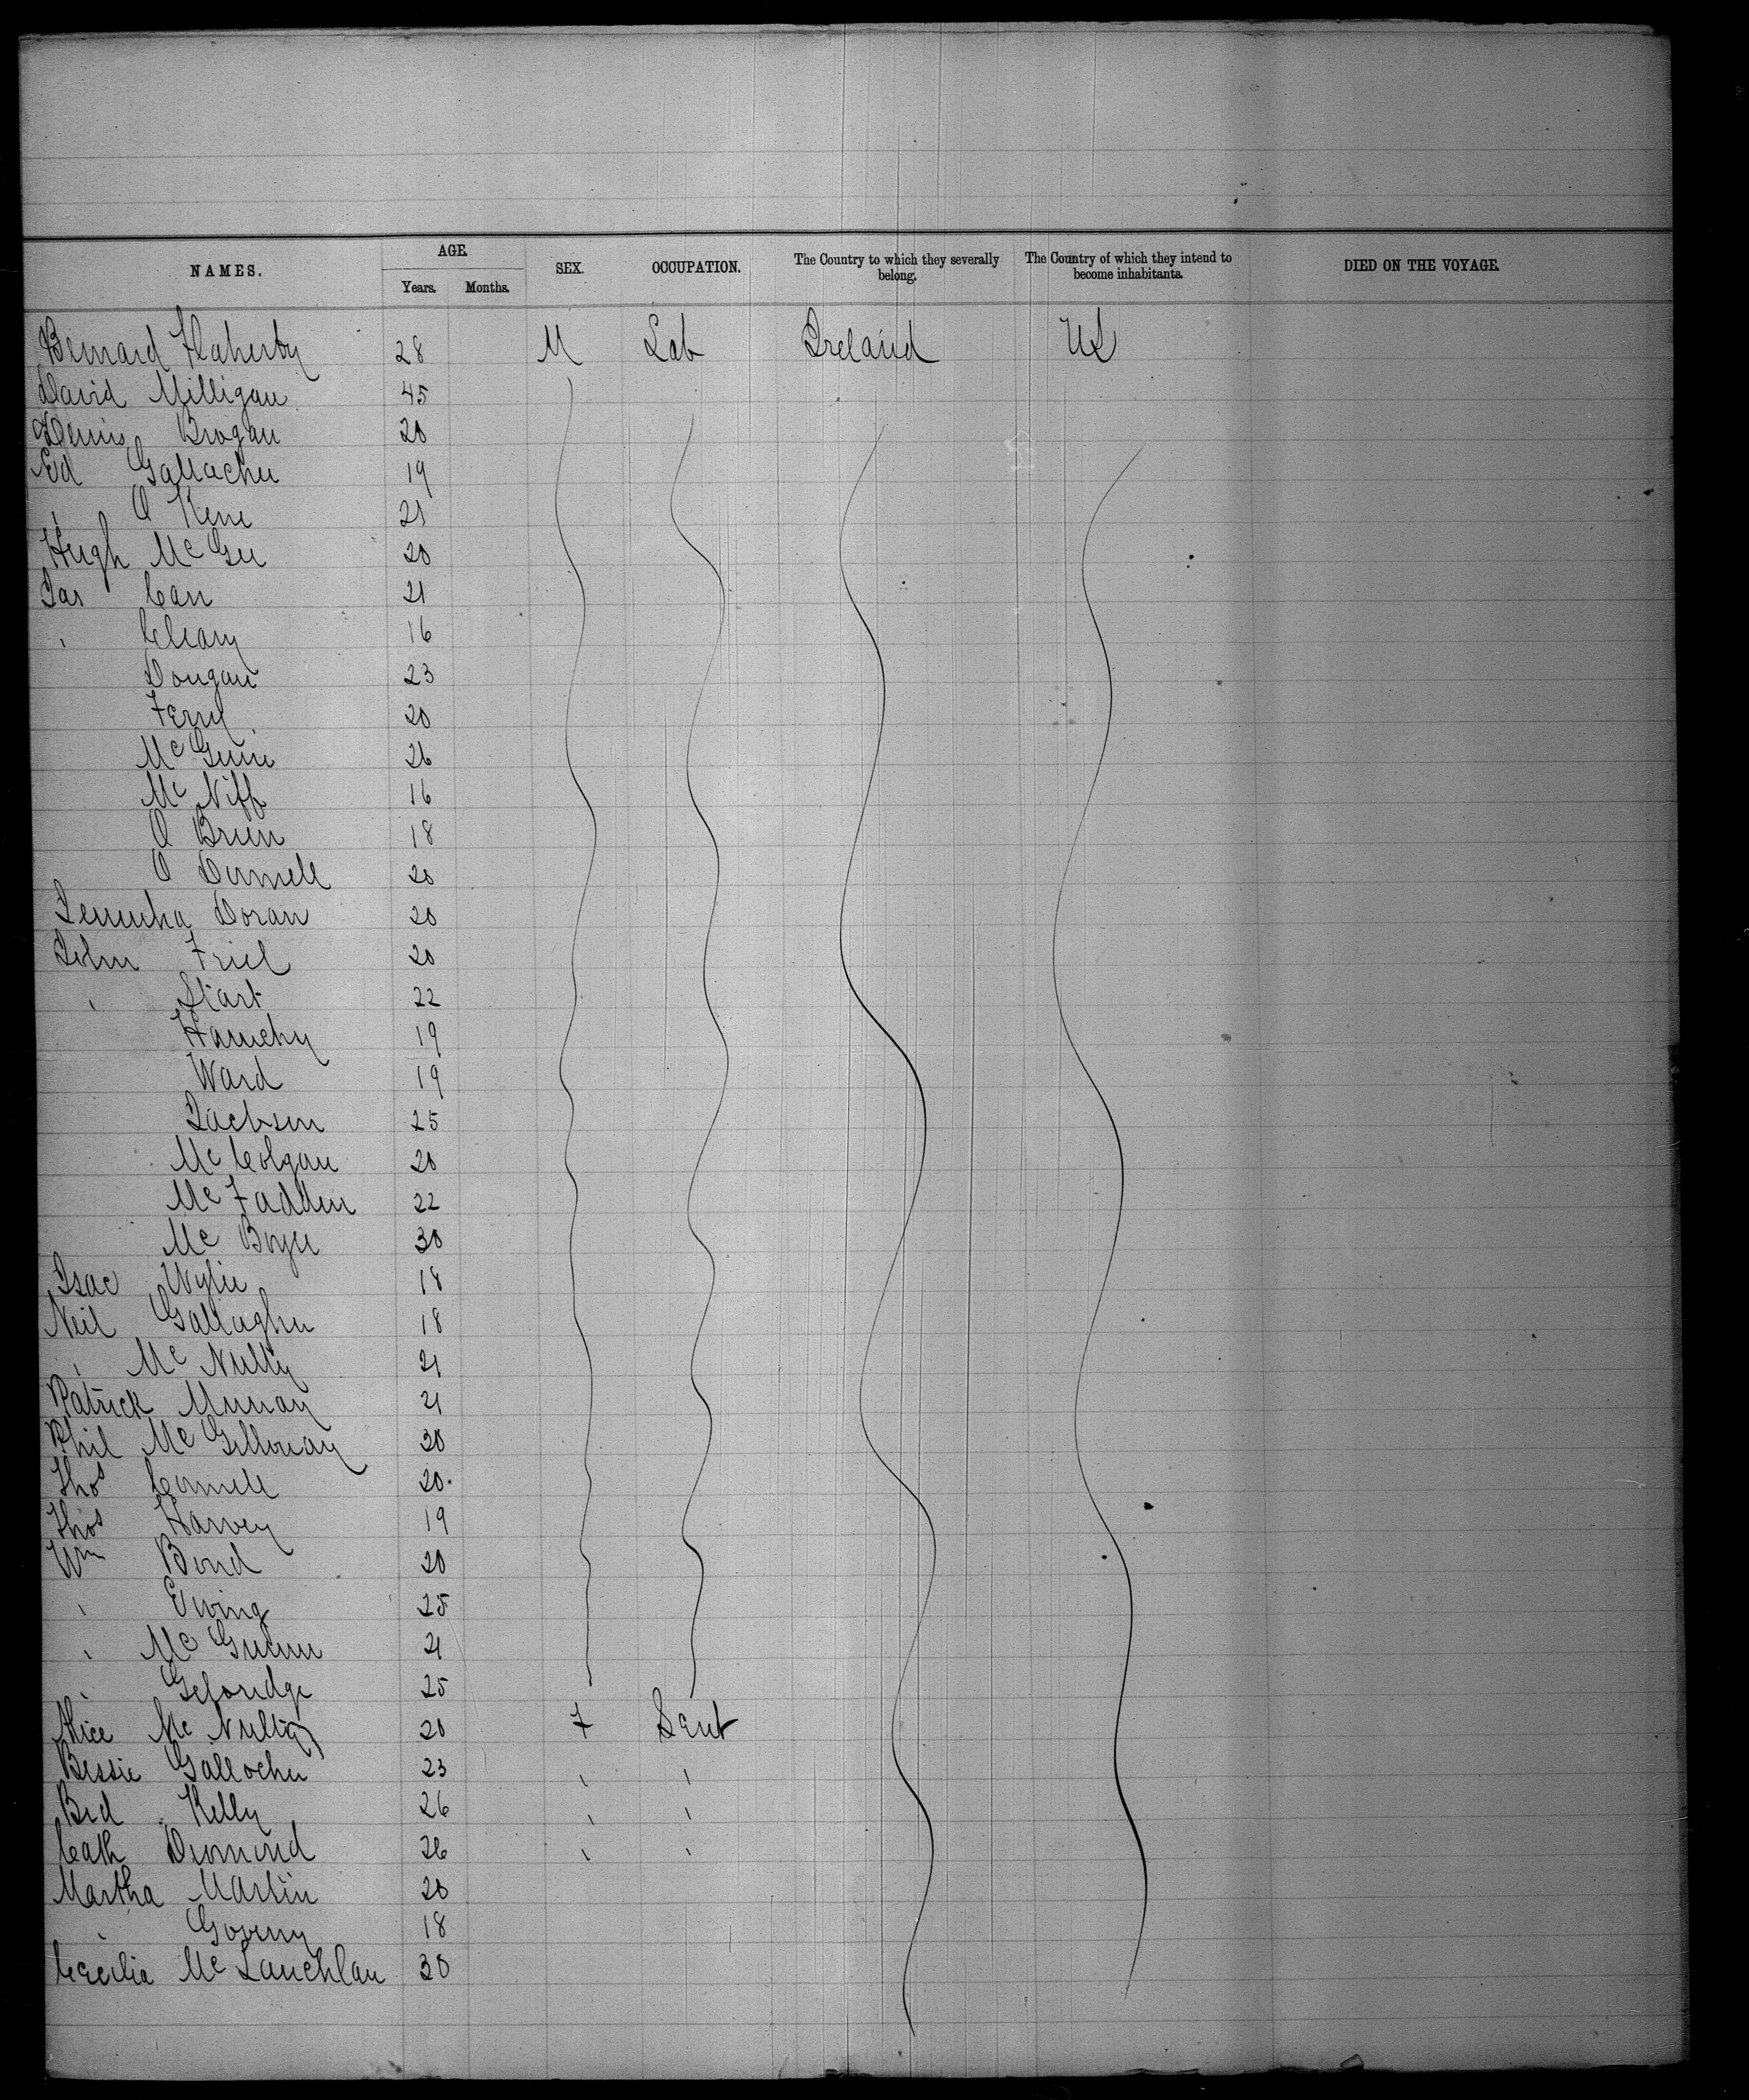 NAMES. AGE. SEX. OCCUPATION. The Country to which they severally belong. The Country of which they intend to become inhabitants. DIED ON THE VOYAGE.
Years. Months.
Bernard Flaherty 28 M Lab Ireland US
David Milligan 45
Denis Brogan 20
Ed Gallacher 19
" O Kene 21
Hugh Mc Gee 20
Jas Carr 21
" Cleary 16
Dougan 23
Ferry 20
Mc 26
Mc Niff 16
O Brien 18
O Donnell 20
Doran 20
John Friel 20
" Start 22
19
Ward 19
Jackson 25
Mc Colgan 20
Mc Fadden 22
Mc 30
Isac Wylie 18
Neil Gallagher 18
" Mc Nulty 21
Patrick Murray 21
Phil Mc Gilloway 30
Thos Connell 20
Thos Harvey 19
Wm Bond 20
" Ewing 25
" Mc 21
" 25
Alice Mc Nulty 20 F Servt
Bessie Gallocher 23 " "
Brd Kelly 26 " "
Cath Diamond 26 " "
Martha Martin 20
" 18
Cecilia Mc Lauchlan 30